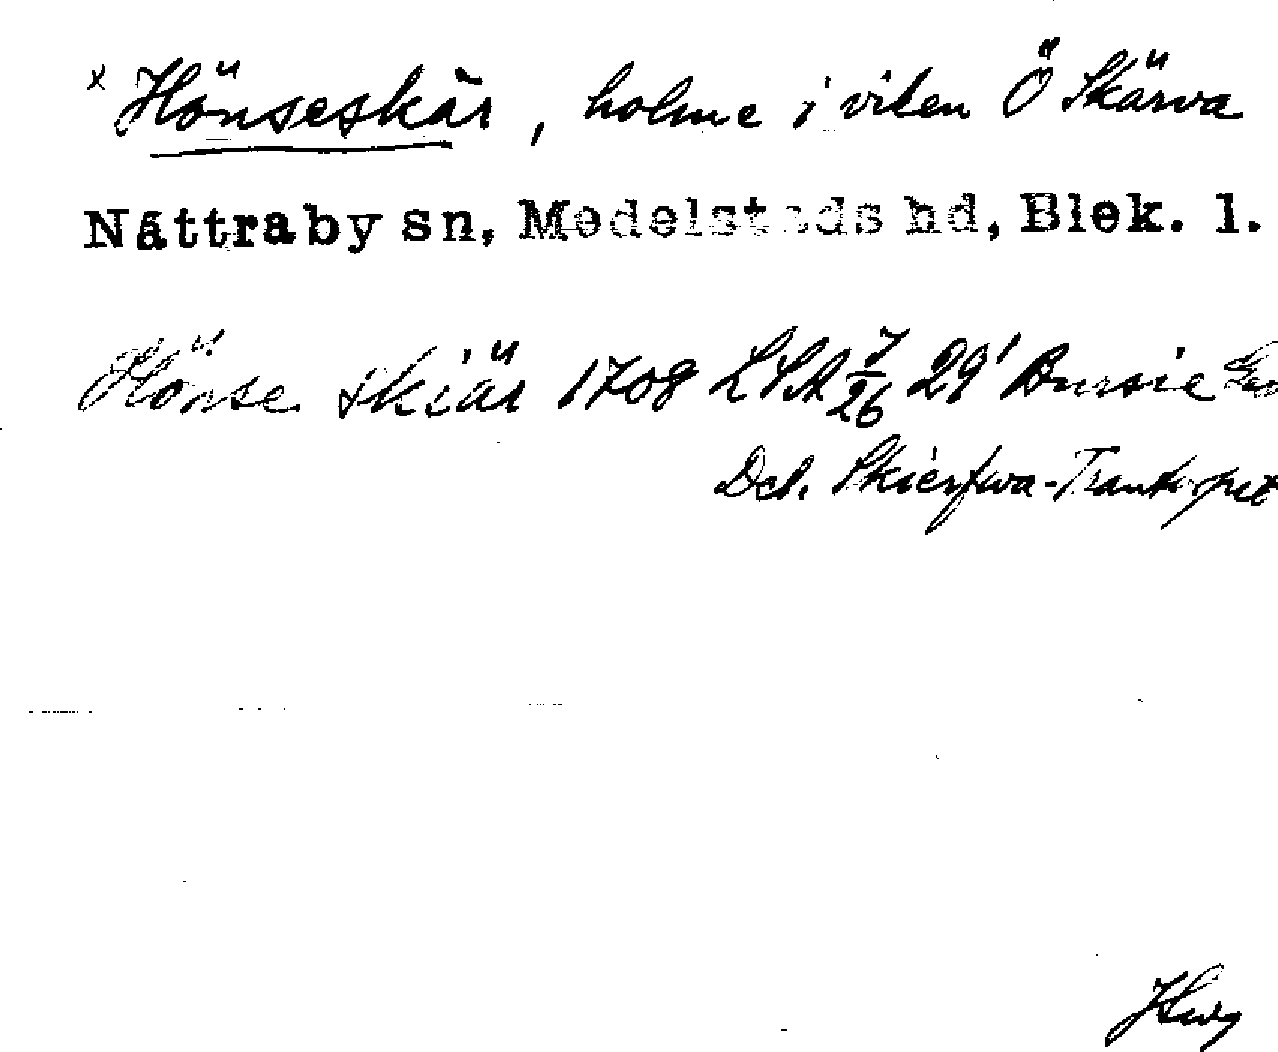 x Hönseskär, holme i viken Ö Skärva
Nättraby sn, Medelstads hd, Blek. l.
Hönse skiär 1708 LSA 7/26 29¹ Bursie
Del. Skierfwa-